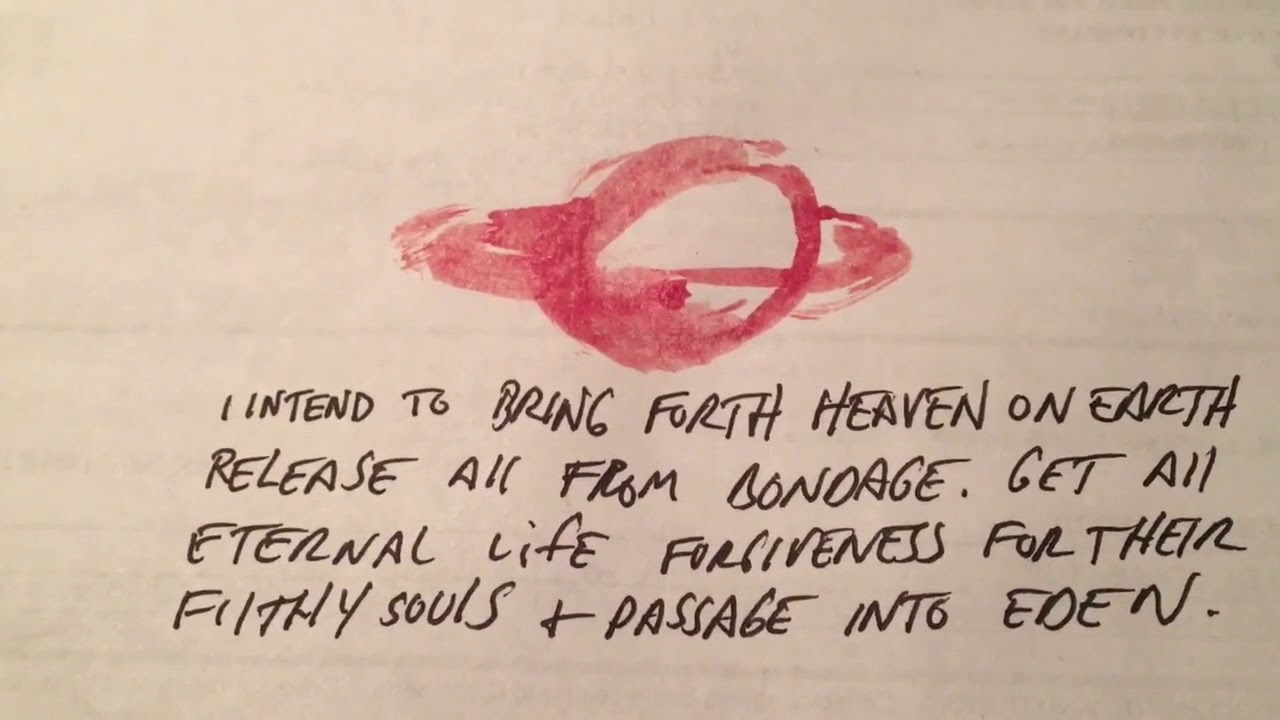 I INTEND TO BRING FORTH HEAVEN ON EARTH
RELEASE All FROM BONDAGE. GET All
ETERNAL LifE FORGIVENESS FOR THEIR
FILTHY SOULS + PASSAGE INTO EDEN.